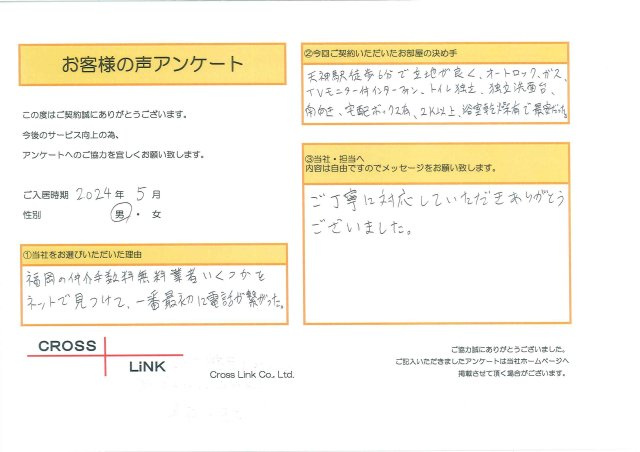 お客様の声アンケート
この度はご契約誠にありがとうございます。
今後のサービス向上の為、
アンケートへのご協力を宜しくお願い致します。
ご入居時期 2024年 5月
性別 男・女
①当社をお選びいただいた理由
福岡の仲介手数料無料業者いくつかを
ネットで見つけて、一番最初に電話が繋がった。
CROSS
LiNK
Cross Link Co., Ltd.
②今回ご契約いただいたお部屋の決め手
天神駅徒歩6分で立地が良く、オートロック、ガス、
TVモニター付インターフォン、トイレ独立、独立洗面台、
南向き、宅配ボックス有、2K以上、浴室乾燥有で最安だった。
③当社・担当へ
内容は自由ですのでメッセージをお願い致します。
ご丁寧に対応していただきありがとう
ございました。
ご協力誠にありがとうございました。
ご記入いただきましたアンケートは当社ホームページへ
掲載させて頂く場合がございます。